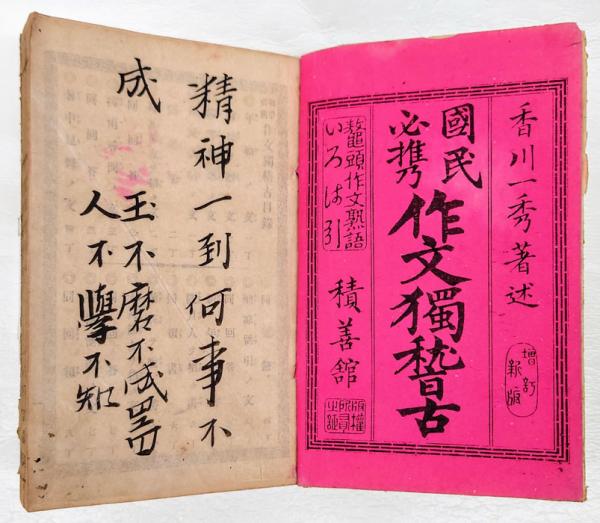 香川一秀著述
増訂
新版
國民
必携
作文獨稽古
鼇頭作文熟語
いろは引
積善館
版權
所有
之証
精神一到何事不
成
玉不磨不成器
人不學不知